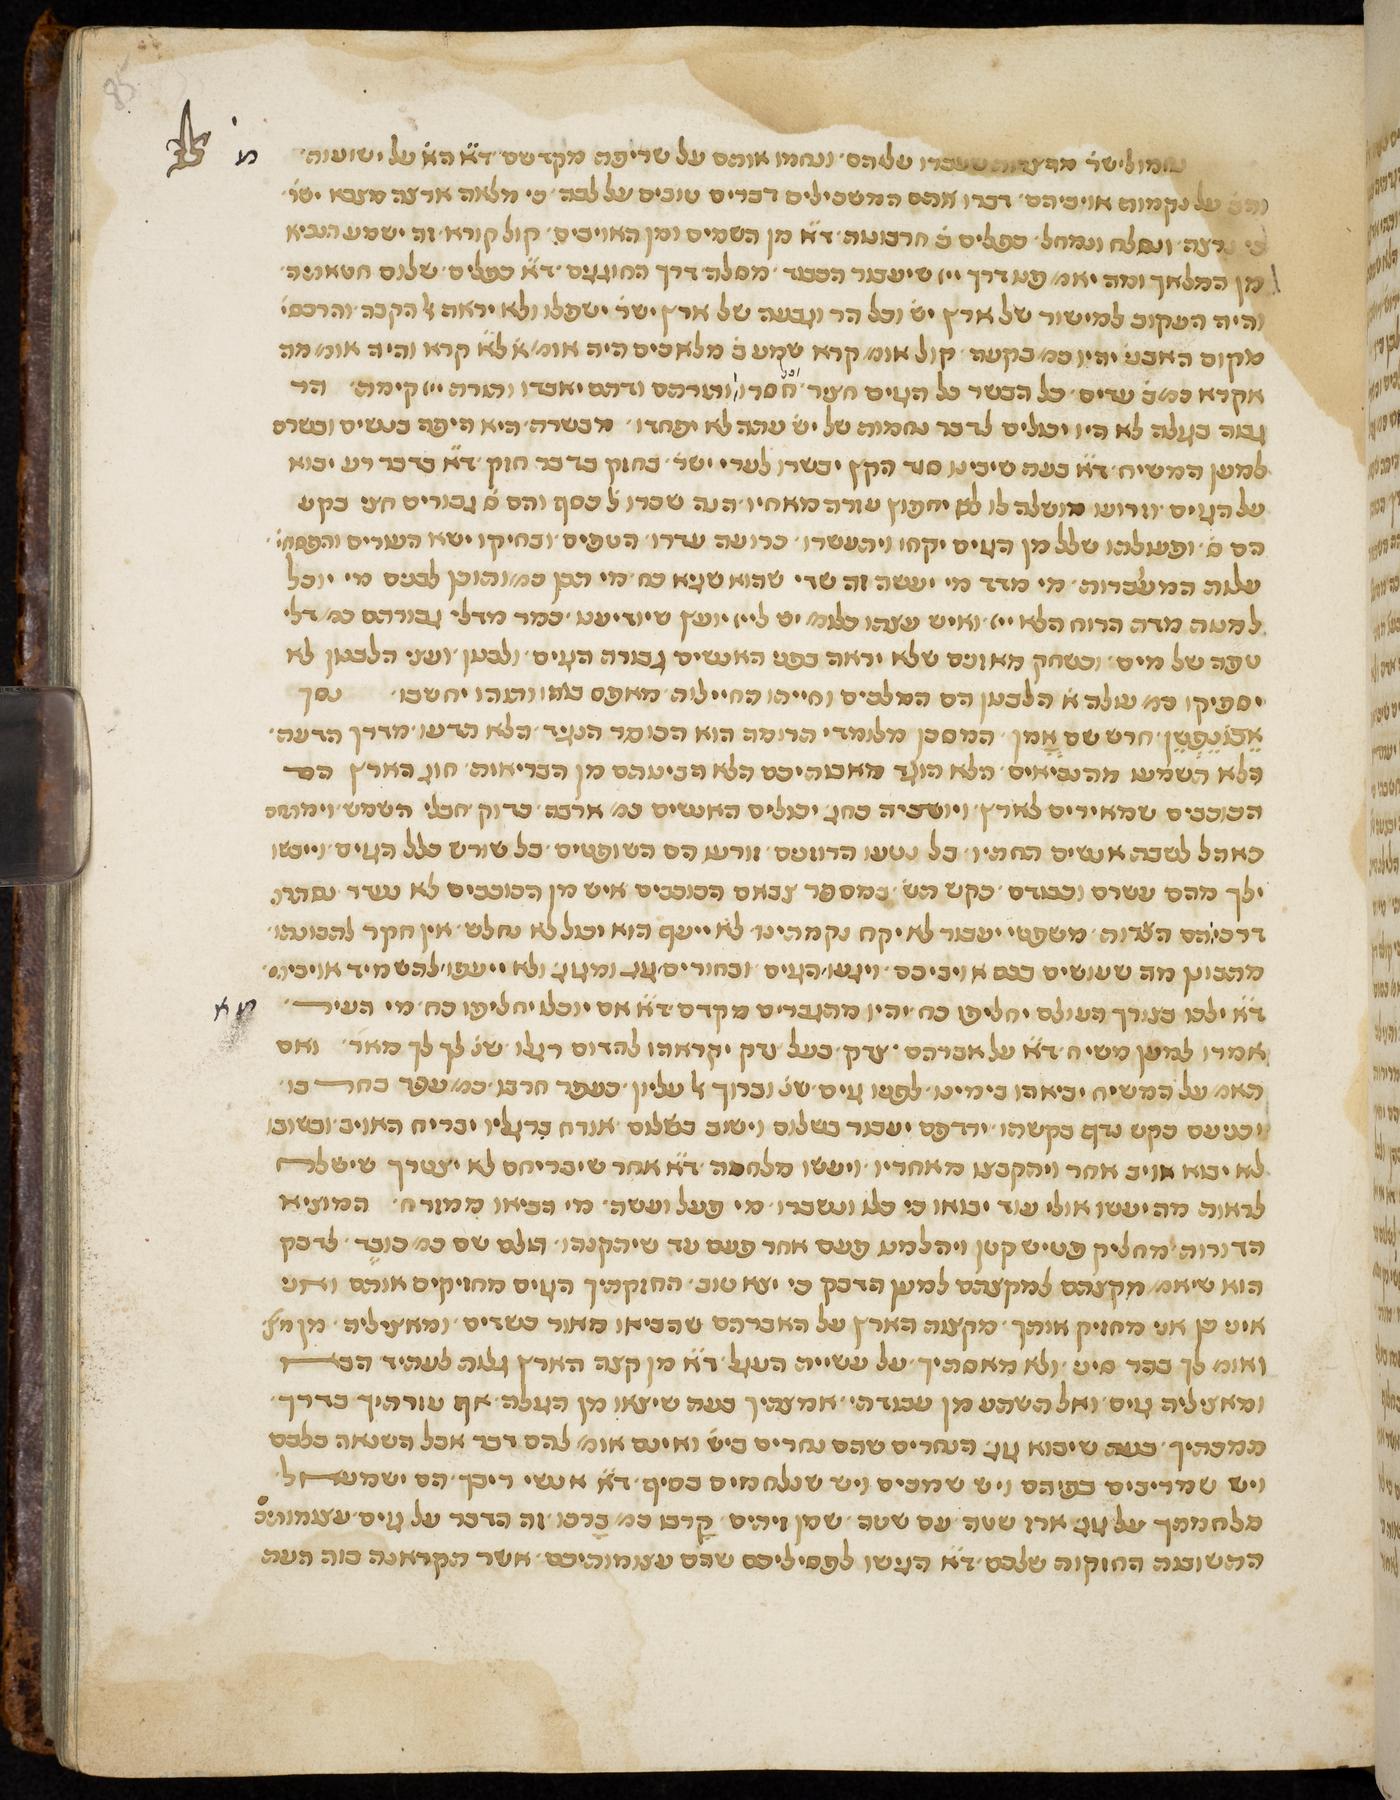 נחמו לישר׳ מהצרות שעברו עליהם׳ ונחמו אותם על שריפת מקדשם׳ ד״א הא׳ על ישועות׳
על נקמות אויביהם׳ דברו אתם המשכילים דברים טובים על לבה׳ כי מלאה ארצה מצבא יש׳
נרצה׳ ונסלח ונמחל׳ כפלים ב׳ חרבונות׳ ד״א מן השמים ומן האויבים׳ קול קורא׳ זה ישמע הנביא
מן המלאך ומה יאמ׳ פנו דרך ייי שיעבור הכבוד׳ מסלה דרך החוגגים׳ ד״א כפלים׳ שלום חטאותיה
והיה העקוב למישור של ארץ יש׳ וכל הר וגבעה של ארץ ישר׳ ישפלו ולא יראה ל׳ הקבה׳ והרכסי׳
מקום האבני׳ יהיו כמ׳ בקעה׳ קול אומ׳ קרא שמע ב׳ מלאכים היה אומ׳ א׳ לא׳ קרא והיה אומ׳ מה
אקרא כמ׳ ב׳ עדים׳ כל הבשר כל הגוים חציר׳ וכל חסדו ותורתם ודתם יאבדו ותורת ייי קימת׳ הר
גבוה בגלה לא היו יכולים לדבר נחמות של יש׳ עתה לא יפחדו׳ מבשרת׳ היא היפה בנשים ובשרם
למען המשיח׳ ד״א בעת שיבינו סוד הקץ יבשרו לערי ישר׳ בחוק בדבר חזק׳ ד״א בדבר רע יבוא
על הגוים׳ וזרועו מושלה לו לא יחפוץ עזרה מאחיו׳ הנה שכרו ל׳ כסף והם ס׳ גבורים חצי בקע
הם ס׳ ופעולתו שלל מן הגוים יקחו ויתעשרו׳ כרועה עדרו׳ הטפים׳ ובחיקו ישא העורים והפסחי׳
עלות המעוברות׳ מי מדד מי יעשה זה שדי שהוא שגיא כח׳ מי תכן כמ׳ ותוכן לבנים מי יוכל
למנות מדת הרוח הלא ייי׳ ואיש עצתו כלומ׳ יש לייי יועץ שיודיענו׳ כמר מדלי גבורתם כמ׳ דלי
טפה של מים׳ וכשחק מאזנים שלא יראה בפני האנשים גבורת הגוים׳ ולבנון׳ ועצי הלבנון לא
יספיקו כמ׳ עולה א׳ הלבנון הם המלכים וחייתו החיילות׳ מאפס כמו ותוהו יחשבו׳ נסך
חרש שם אמן׳ המסכן מלומדי הרומה הוא הכוסר הנגיד׳ הלא תדעו׳ מדרך הדעה׳
הלא תשמעו מהנביאים׳ הלא הוגד מאבותיכם הלא הבינותם מן הבריאות׳ חוג הארץ הם
הכוכבים שמאירים לארץ׳ ויושביה כחג׳ יכולים האנשים כמ׳ ארבה׳ כדוק חבלי השמש׳ וימתחם
כאהל לשבת אנשים תחתיו׳ בל נטעו הרוזנים׳ זורעו הם השופטים׳ בל שורש כלל הגוים׳ וייבשו
ילך מהם עשרם וכבודם׳ כקש הש׳ במספר צבאם הכוכבים איש מן הכוכבים לא נעדר׳ נסתרה
דרכי׳הם הצרות׳ משפטי יעבור לא יקח נקמתינו׳ לא ייעף הוא יכול לא נחלש׳ אין חקר לתבונתו׳
מתבונן מה שעושים בכם אויביכם׳ ויגעו הגוים׳ ובחורים גוג ומגוג׳ ולא ייעפו להשמיד אויביו׳
ד״א ילכו בצורך העולם יחליפו כח׳ יהיו מתגברים מקדם׳ ד״א אם יוכלו יחליפו כח׳ מי העיר
אמרו למען משיח׳ ד״א על אברהם׳ צדק׳ בעל צדק יקראהו להדום רגלו׳ שנ׳ לך לך מאר׳ ואם
תאמ׳ על המשיח יביאהו בימינו׳ לפניו גוים׳ שנ׳ וברוך ל׳ עליון׳ כעפר חרבו׳ כמ׳ עפר בחרבו׳
יכניעם כקש נדף בקשתו׳ ירדפם יעבור בשלום וישוב בשלום׳ אורח ברגליו יבריח האויב׳ וכשובו
לא יבוא אויב אחר ויתקבצו מאחריו׳ ויעשו מלחמה׳ ד״א אחר שיבריחם לא יצטרך שישלח
לראות מה יעשו אולי עוד יבואו כי כלו ונשברו׳ מי פעל ועשה׳ מי הביאו ממזרח׳ המוציא
הדורות׳ מחליק פטיש קטן ויהלמנו פעם אחר פעם עד שיתקנהו׳ הולם שם כמ׳ כובד׳ לדבק
הוא שיאמ׳ מקצתם למקצתם למען הדבק כי יצא טוב׳ החזקתיך הגוים מחזיקים אותם ואני
אינו כן אני מחזיק אותך׳ מקצות הארץ על האברהם שהביאו מאור כשדים׳ ומאציליה׳
ואומ׳ לך בהר סיני׳ ולא מאסתיך׳ על עשיית העגל׳ ד״א מן קצה הארץ גלות לעתיד הבא
ומאציליה גוים׳ ואל תשתע מן עבודתי׳ אמצתיך בעת שיצאו מן הגלה׳ אף עזרתיך בדרך׳
תמכתיך׳ בעת שיבוא גוג׳ הנחרים שהם נחרים ביש׳ ואינם אומ׳ להם דבר אבל השנאה בלבם
ויש שמריבים בפיהם ויש שמכים ויש שנלחמים בסיף׳ ד״א אנשי ריבך׳ הם ישמעאל׳
מלחמתך על גוג׳ ארז שטה׳ עם שטה׳ שמן זיתים׳ קרבו כמ׳ ברכו׳ זה הדבר על גוים׳ עצמותיכ׳
התשובות החזקות שלכם׳ ד״א הגישו לפסיליכם שהם עצמותיכם׳ אשר תקראנה כזה העת